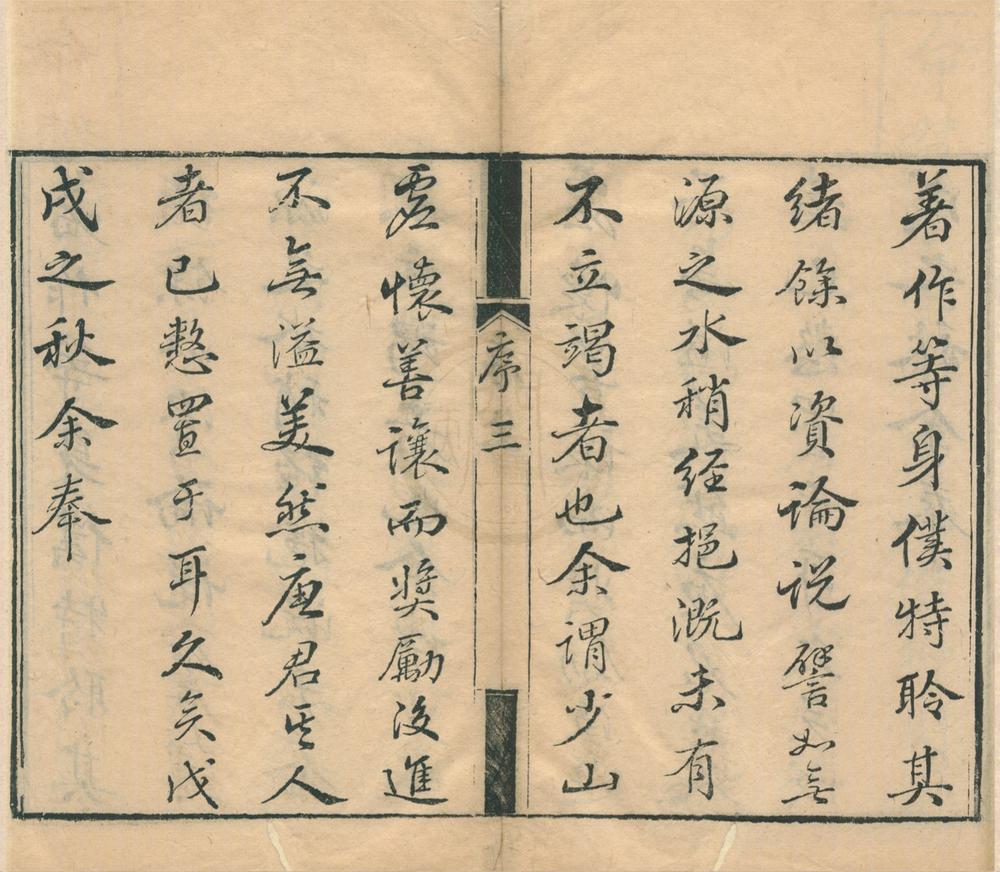 著作等身僕特聆其
緒餘以資論説譬如無
源之水稍経挹溉未有
不立竭者也余謂少山
序三
虚懷善讓而奨勵後進
不無溢美然唐君其人
者已慙置于耳久矣戊
戌之秋余奉